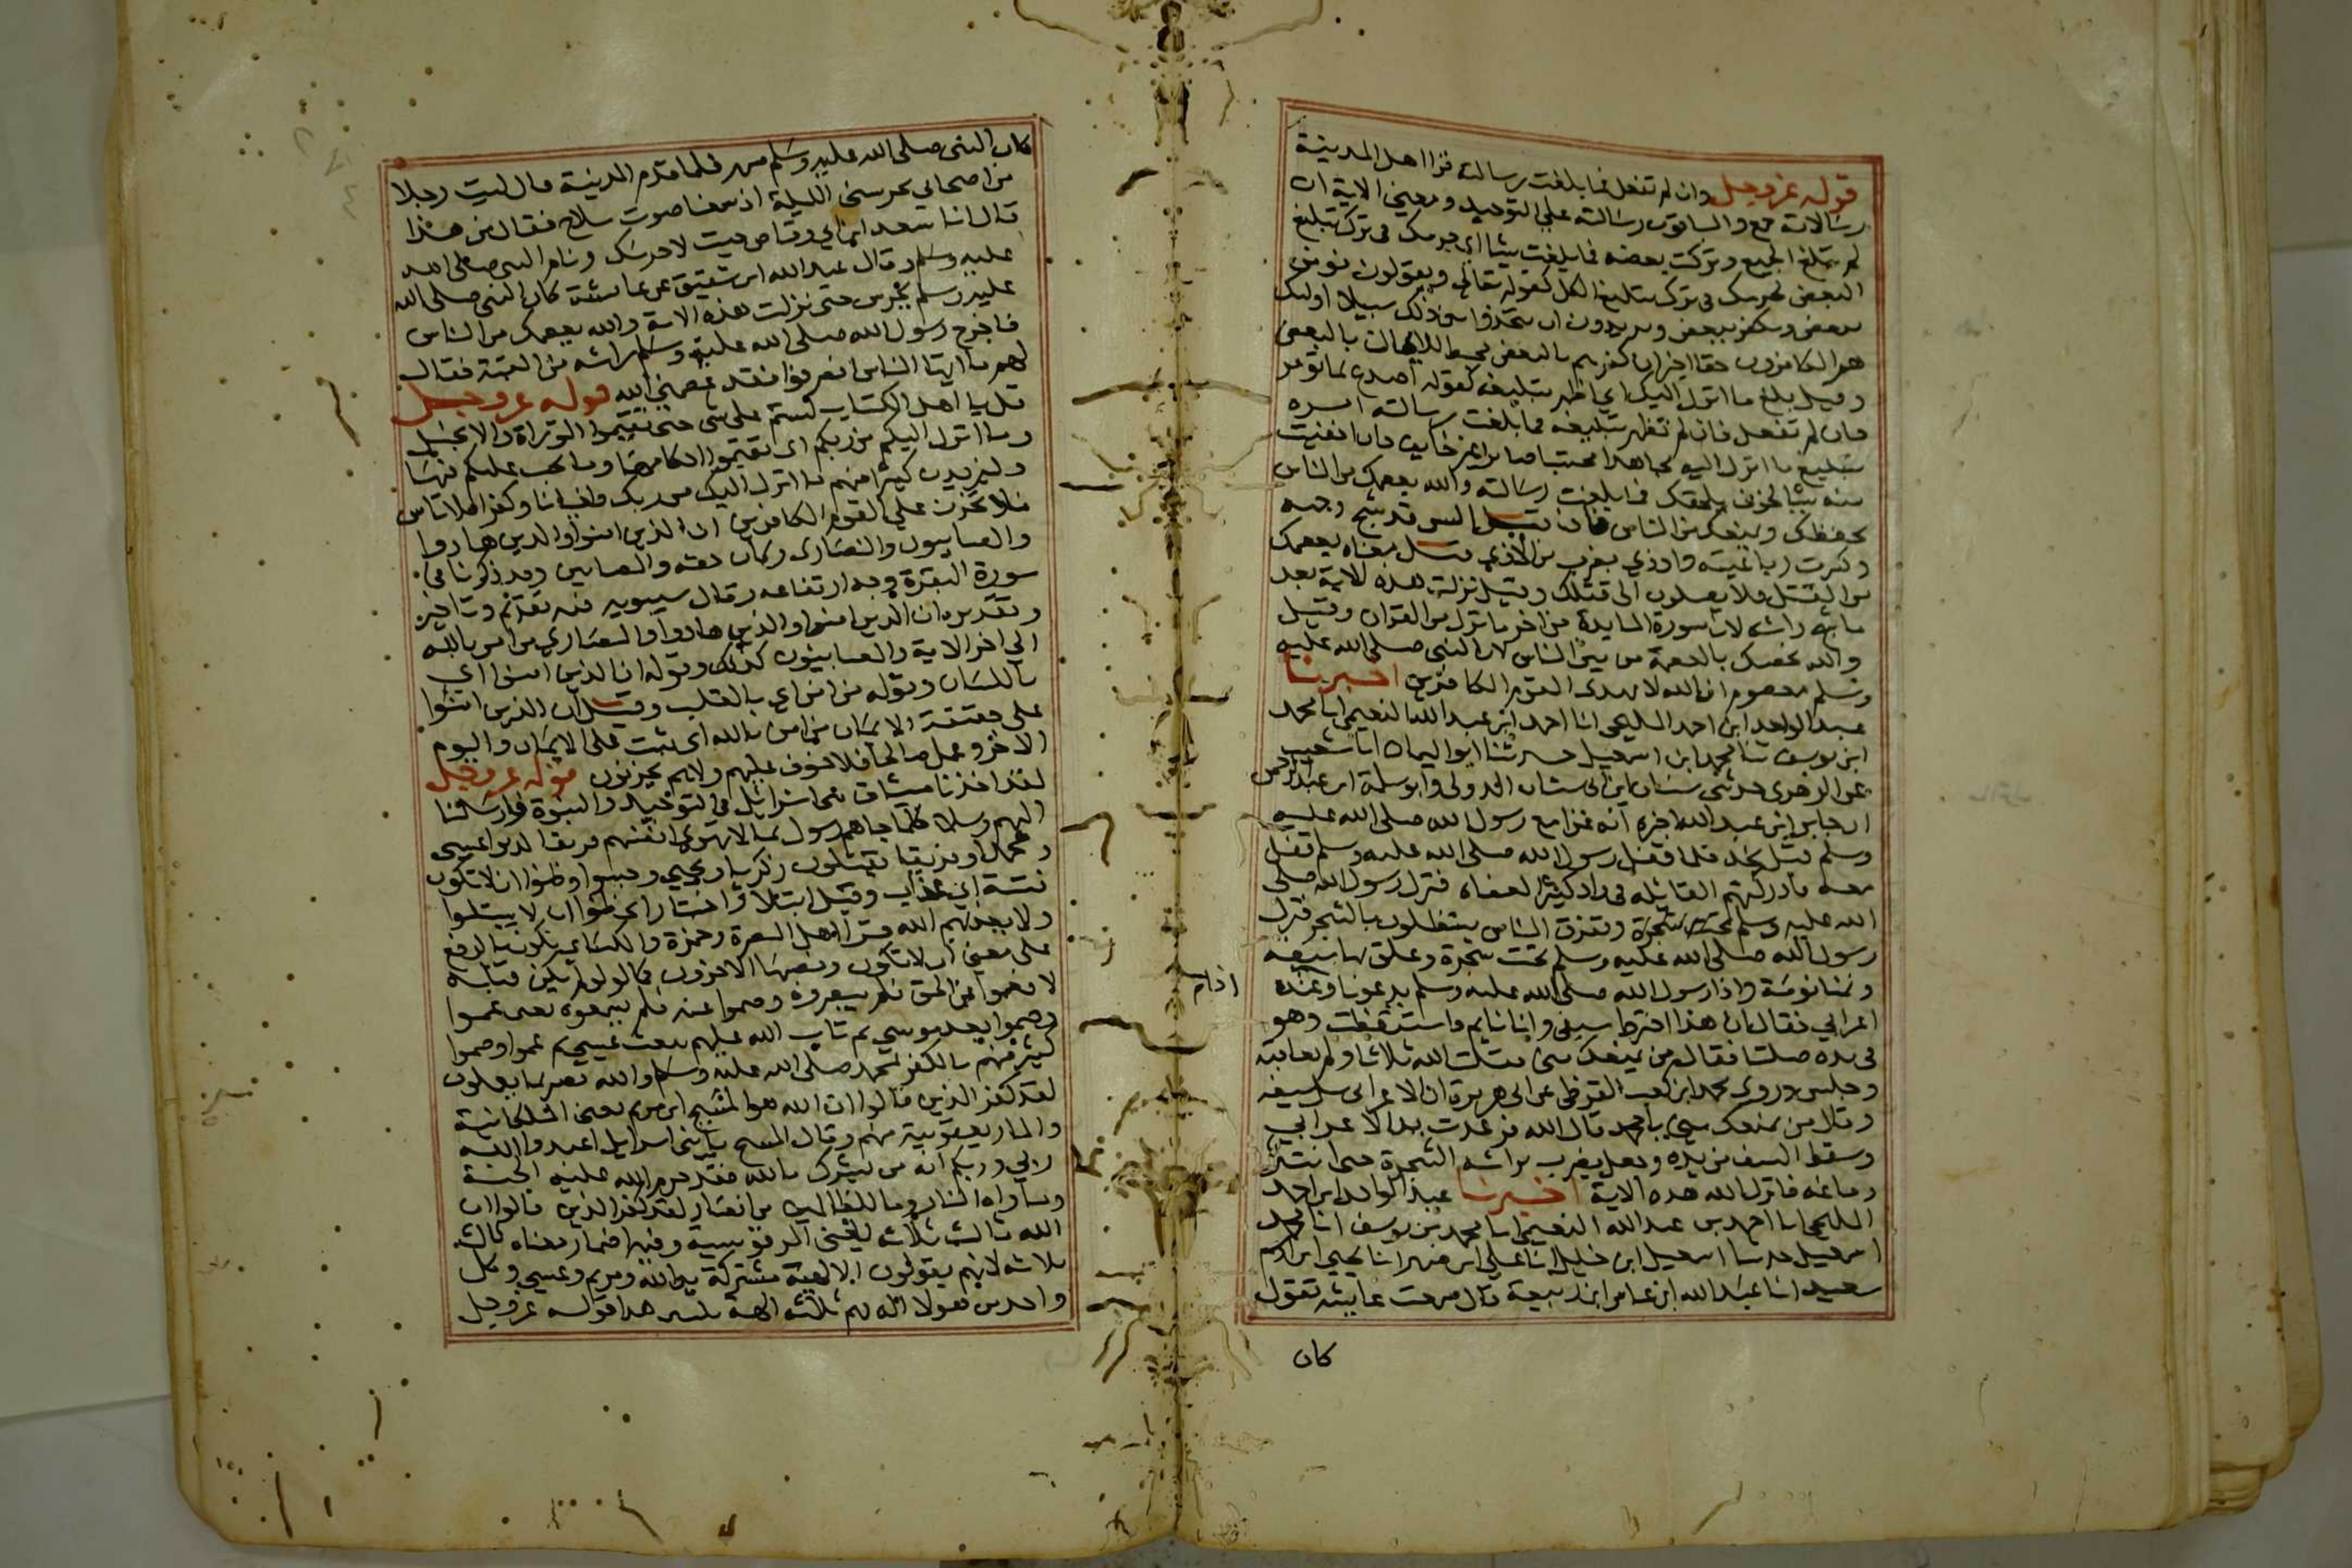 قوله عز وجل وان لم تفعل فما بلغت رسالته قرا اهل المدينة
رسالاته جمع والباقون رسالته على التوحيد ومعنى الاية ان
لم تبلغ الجميع وتركت بعضه فما بلغت شيئا اى جرمك فى ترك تبليغ
البعض كجرمك فى ترك تبليغ الكل كقوله تعالى ويقولون نومن
ببعض ونكفر ببعض ويريدون ان يتخذوا بين ذلك سبيلا اوليك
هم الكافرون حقا اخبر ان كفرهم بالبعض محبط للايمان بالبعض
وقيل بلغ ما انزل اليك اى اظهر تبليغه كقوله اصدع بما تومر
فان لم تفعل فان لم تظهر تبليغه فما بلغت رسالته امره
بتبليغ ما انزل اليه مجاهدا محتسبا صابرا غير خايف فان اخفيت
منه شيئا لخوف يلحقك فما بلغت رسالته والله يعصمك من الناس
يحفظك ويمنعك من الناس فان قيل اليس قد شج وجهه
وكسرت رباعيته واوذي بضرب من الاذي قيل معناه يعصمك
من القتل فلا يصلون الى قتلك وقيل نزلت هذه الاية بعد
ما شج راسه لان سورة المايدة من اخر ما نزل من القران وقيل
والله يخصك بالعصمة من بين الناس لان النبى صلى الله عليه
وسلم معصوم ان الله لا يهدى القوم الكافرين اخبرنا
عبد الواحد ابن احمد المليحى انا احمد ابن عبد الله النعيمى انا محمد
ابن يوسف ثنا محمد ابن اسمعيل حدثنا ابو اليمان انا شعيب
عن الزهرى حدثنى سنان ابن ابى سنان الدولى وابو سلمة ابن عبد الرحمن
ان جابر ابن عبد الله اخبره انه غزا مع رسول الله صلى الله عليه
وسلم قبل نجد فلما قفل رسول الله صلى الله عليه وسلم قفل
معه فادركتهم القايلة فى واد كثير العضاه فنزل رسول الله صلى
الله عليه وسلم تحت شجرة وتفرق الناس يستظلون بالشجر فنزل
رسول الله صلى الله عليه وسلم تحت شجرة وعلق بها سيفه
ونمنا نومة واذا رسول الله صلى الله عليه وسلم يدعونا وعنده
اعرابي فقال ان هذا اخترط سيفى وانا نايم فاستيقظت وهو
فى يده صلتا فقال من يمنعك منى فقلت الله ثلاثا ولم يعاقبه
وجلس وروى محمد ابن كعب القرظى عن ابى هريرة ان الاعرابى سل سيفه
وقال من يمنعك منى يا محمد قال الله فرعدت يد الاعرابي
وسقط السيف من يده وجعل يضرب براسه الشجرة حتى انتثر
دماغه فانزل الله هذه الاية اخبرنا عبد الواحد ابن احمد
المليحى انا احمد بن عبد الله النعيمى انا محمد بن يوسف انا محمد
اسمعيل حدثنا اسمعيل ابن خليل انا على ابن مسهر انا يحيى ابن
سعيد انا عبد الله ابن عامر ابن ربيعة قال سمعت عايشه تقول
كان
كان النبى صلى الله عليه وسلم سهر فلما قدم المدينة قال ليت رجلا
من اصحابي يحرسنى الليلة اذ سمعنا صوت سلاح فقال من هذا
قال انا سعد ابن ابي وقاص جيت لاحرسك ونام النبى صلى الله
عليه وسلم وقال عبد الله ابن شقيق عن عايشة كان النبى صلى الله
عليه وسلم يحرس حتى نزلت هذه الاية والله يعصمك من الناس
فاخرج رسول الله صلى الله عليه وسلم راسه من القبة فقال
لهم يا ايها الناس انصرفوا فقد عصمنى الله قوله عز وجل
قل يا اهل الكتاب لستم على شى حتى تقيموا التوراة والانجيل
وما انزل اليكم من ربكم اى تقيموا احكامهما وما يجب عليكم فيهما
وليزيدن كثيرا منهم ما انزل اليك من ربك طغيانا وكفرا فلا تاس
فلا تحزن على القوم الكافرين ان الذين امنوا والذين هادوا
والصابيون والنصارى وكان حقه والصابين وقد ذكرنا فى
سورة البقرة وجه ارتفاعه وقال سيبويه فيه تقديم وتاخير
وتقديره ان الذين امنوا والذين هادوا والنصارى من امن بالله
الى اخر الاية والصابيون كذلك وقوله ان الذين امنوا اى
باللسان وقوله من امن اي بالقلب وقيل ان الذين امنوا
على حقيقة الايمان من امن بالله اى ثبت على الايمان واليوم
الاخر وعمل صالحا فلا خوف عليهم ولا هم يحزنون قوله عز وجل
لقد اخذنا ميثاق بنى اسرائيل فى التوحيد والنبوة وارسلنا
اليهم رسلا كلما جاهم رسول بما لا تهوى انفسهم فريقا كذبوا عيسى
ومحمدا وفريقا يقتلون زكريا ويحيى وحسبوا وظنوا ان لا تكون
فتنة اي عذاب وقيل ابتلا واختبار اى ظنوا ان لا يبتلوا
ولا يعذبهم الله قرا اهل البصرة وحمزة والكساي تكون بالرفع
على معنى ان لا تكون ونصبها الاخرون كما لو لم تكن قبله
لا فعموا عن الحق فلم يبصروه وصموا عنه فلم يسمعوه يعنى عموا
وصموا بعد موسى ثم تاب الله عليهم ببعث عيسى ثم عموا وصموا
كثير منهم بالكفر بمحمد صلى الله عليه وسلم والله بصير بما يعملون
لقد كفر الذين قالوا ان الله هو المسيح ابن مريم يعنى الملكانية
والمار يعقوبية منهم وقال المسيح يا بنى اسرايل اعبدوا الله
ربي وربكم انه من يشرك بالله فقد حرم الله عليه الجنة
وماواه النار وما للظالمين من انصار لقد كفر الذين قالوا ان
الله ثالث ثلاثة يعنى المرقوسية وفيه اضمار معناه ثالث
ثلاثه لانهم يقولون الالهية مشتركة بين الله ومريم وعيسى وكل
واحد من هولا اله فهم ثلاثه الهة يفسر هذا قوله عز وجل